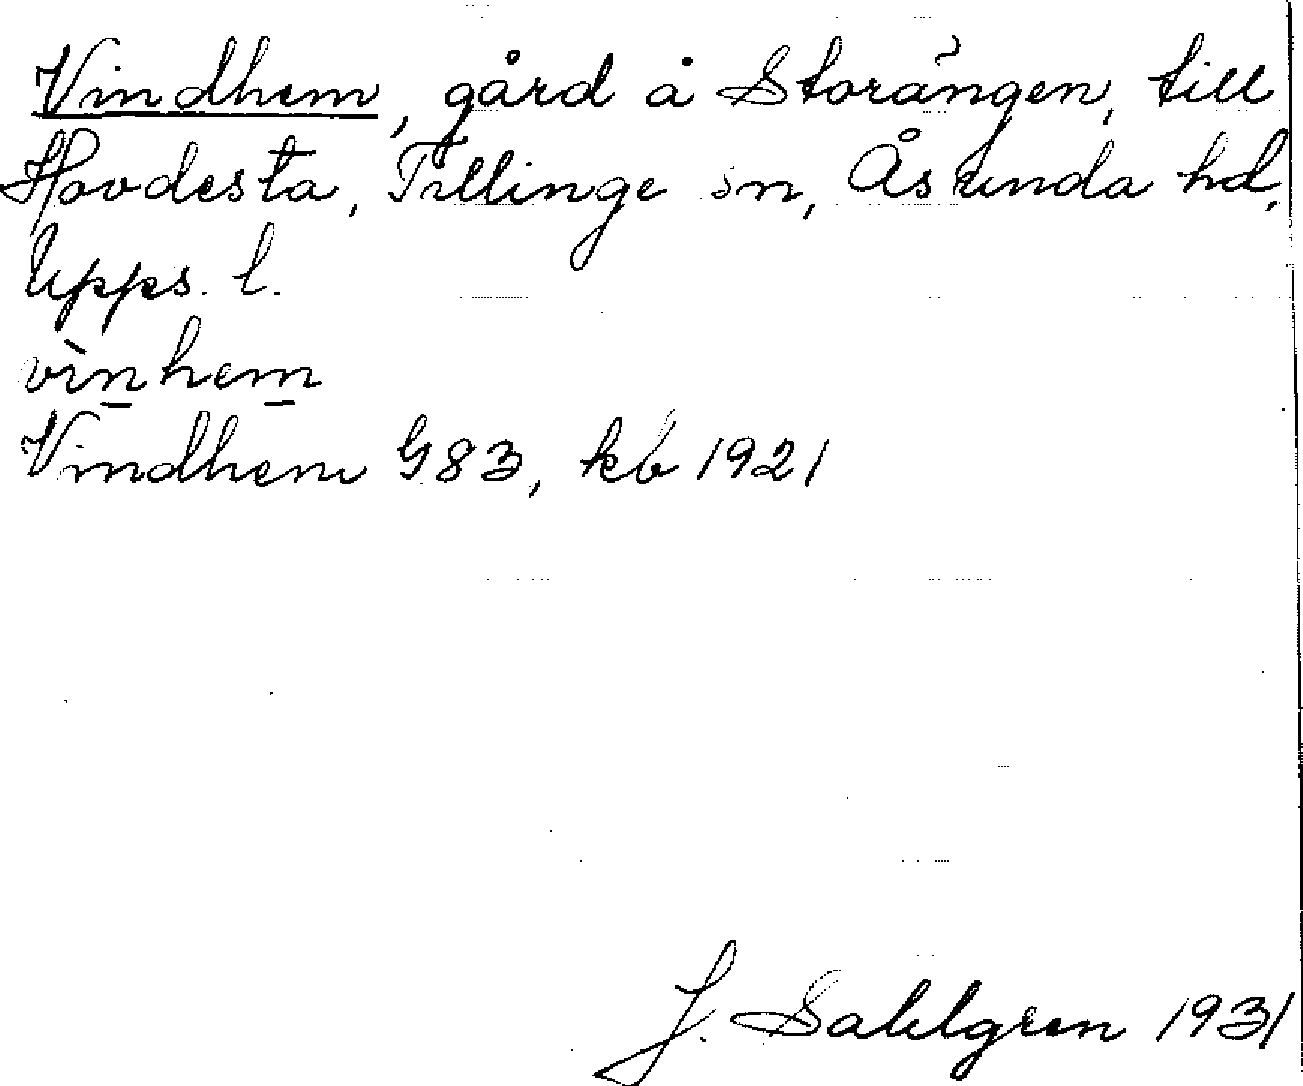 Vindhem, gård å Storängen, till
Hovdesta, Tillinge sn, Åsunda hd,
Upps. l.
vìn̲hem̲
Vindhem G83, kb 1921
J. Sahlgren 1931